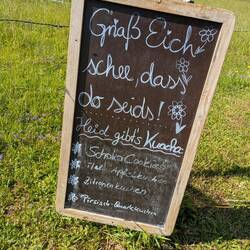 Griaß Eich
schee, dass
do seids!
Heid gibt's Kuacha:
Schoko Cookies
ital. Apfelkuchen
Zitronenkuchen
Pfirsich-Quarkkuchen